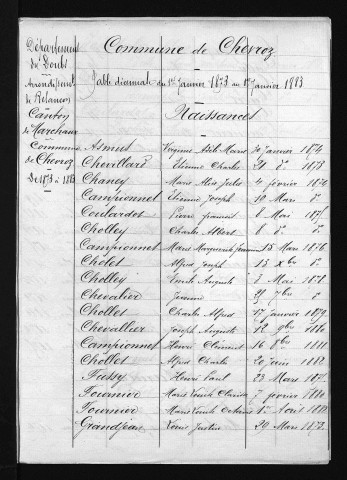 Département
du Doubs
Arrondissement
de Besançon
Canton
de Marchaux
Commune
de Chevroz
De 1873 à 1883
Commune de Chevroz
Table décennale du 1er Janvier 1873 au 1er Janvier 1883
Naissances
Asmus Virginie Marie 30 janvier 1874
Chevillard Etienne Charles 21 do 1873
Chaney Marie 4 février 1874
Campionnet Etienne Joseph 10 Mars do
Coulardot Pierre 8 Mai
Cholley Charles Albert 8 do
Campionnet Marie Marguerite 15 Mars 1876
Cholet Alfred Joseph 15 Xbre do
Cholley Emile Auguste 5 Mai 1878
Chevalier 7bre do
Chollet Charles Alfred 17 janvier 1879
Chevallier Joseph Auguste 12 9bre 1880
Campionnet Henri Clément 16 8bre 1881
Chollet Alfred Charles 20 juin 1882
Fussy Henri Paul 23 Mars
Fournier Marie Emile 7 février 1880
Fournier Marie Emile 1er Avril
Grandjean Louis Justin 29 Mars 1873